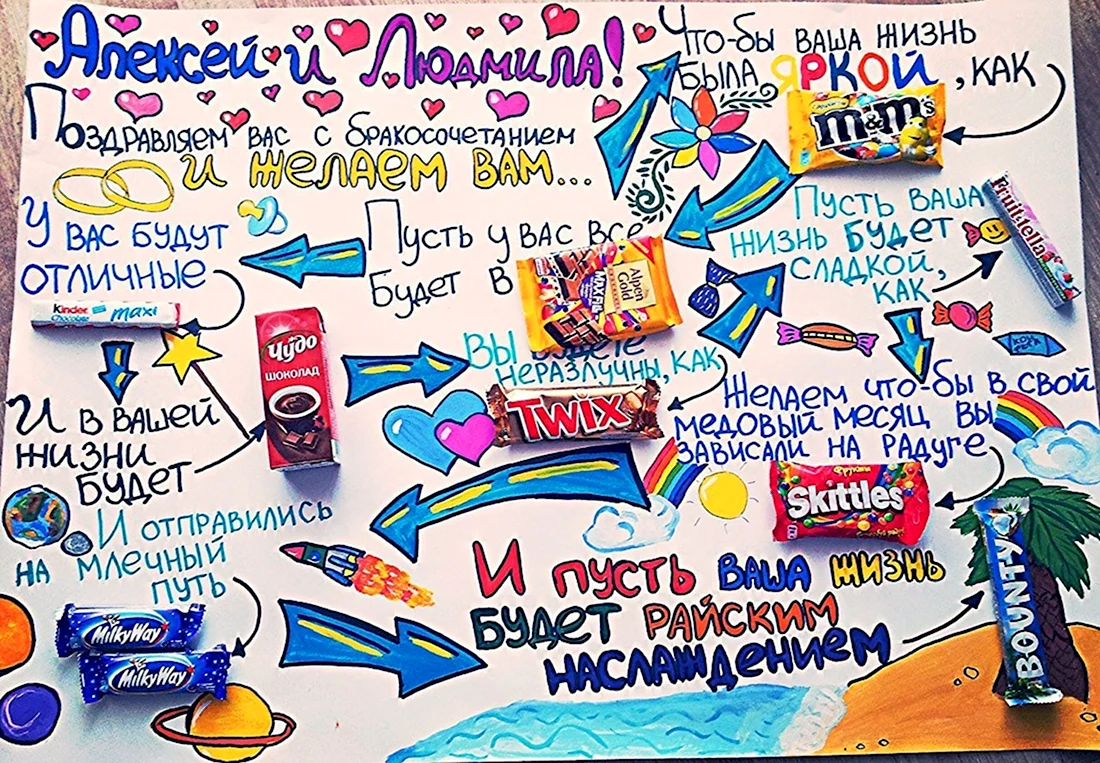 Алексей и Людмила!
Поздравляем вас с бракосочетанием
и желаем вам...
Что-бы ваша жизнь
была яркой, как
m&m's
Пусть у вас все
будет в
Alpen
Gold
MAXI FUN
У вас будут
отличные
Kinder
Chocolate
maxi
И в вашей
жизни
будет
Чудо
ШОКОЛАД
Вы будете
неразлучны, как
TWIX
Пусть ваша
жизнь будет
сладкой,
как
Fruittella
Желаем что-бы в свой
медовый месяц вы
зависали на радуге
Фрукты
Skittles
И отправились
на млечный
путь
MilkyWay
MilkyWay
И пусть ваша жизнь
будет райским
наслаждением
BOUNTY